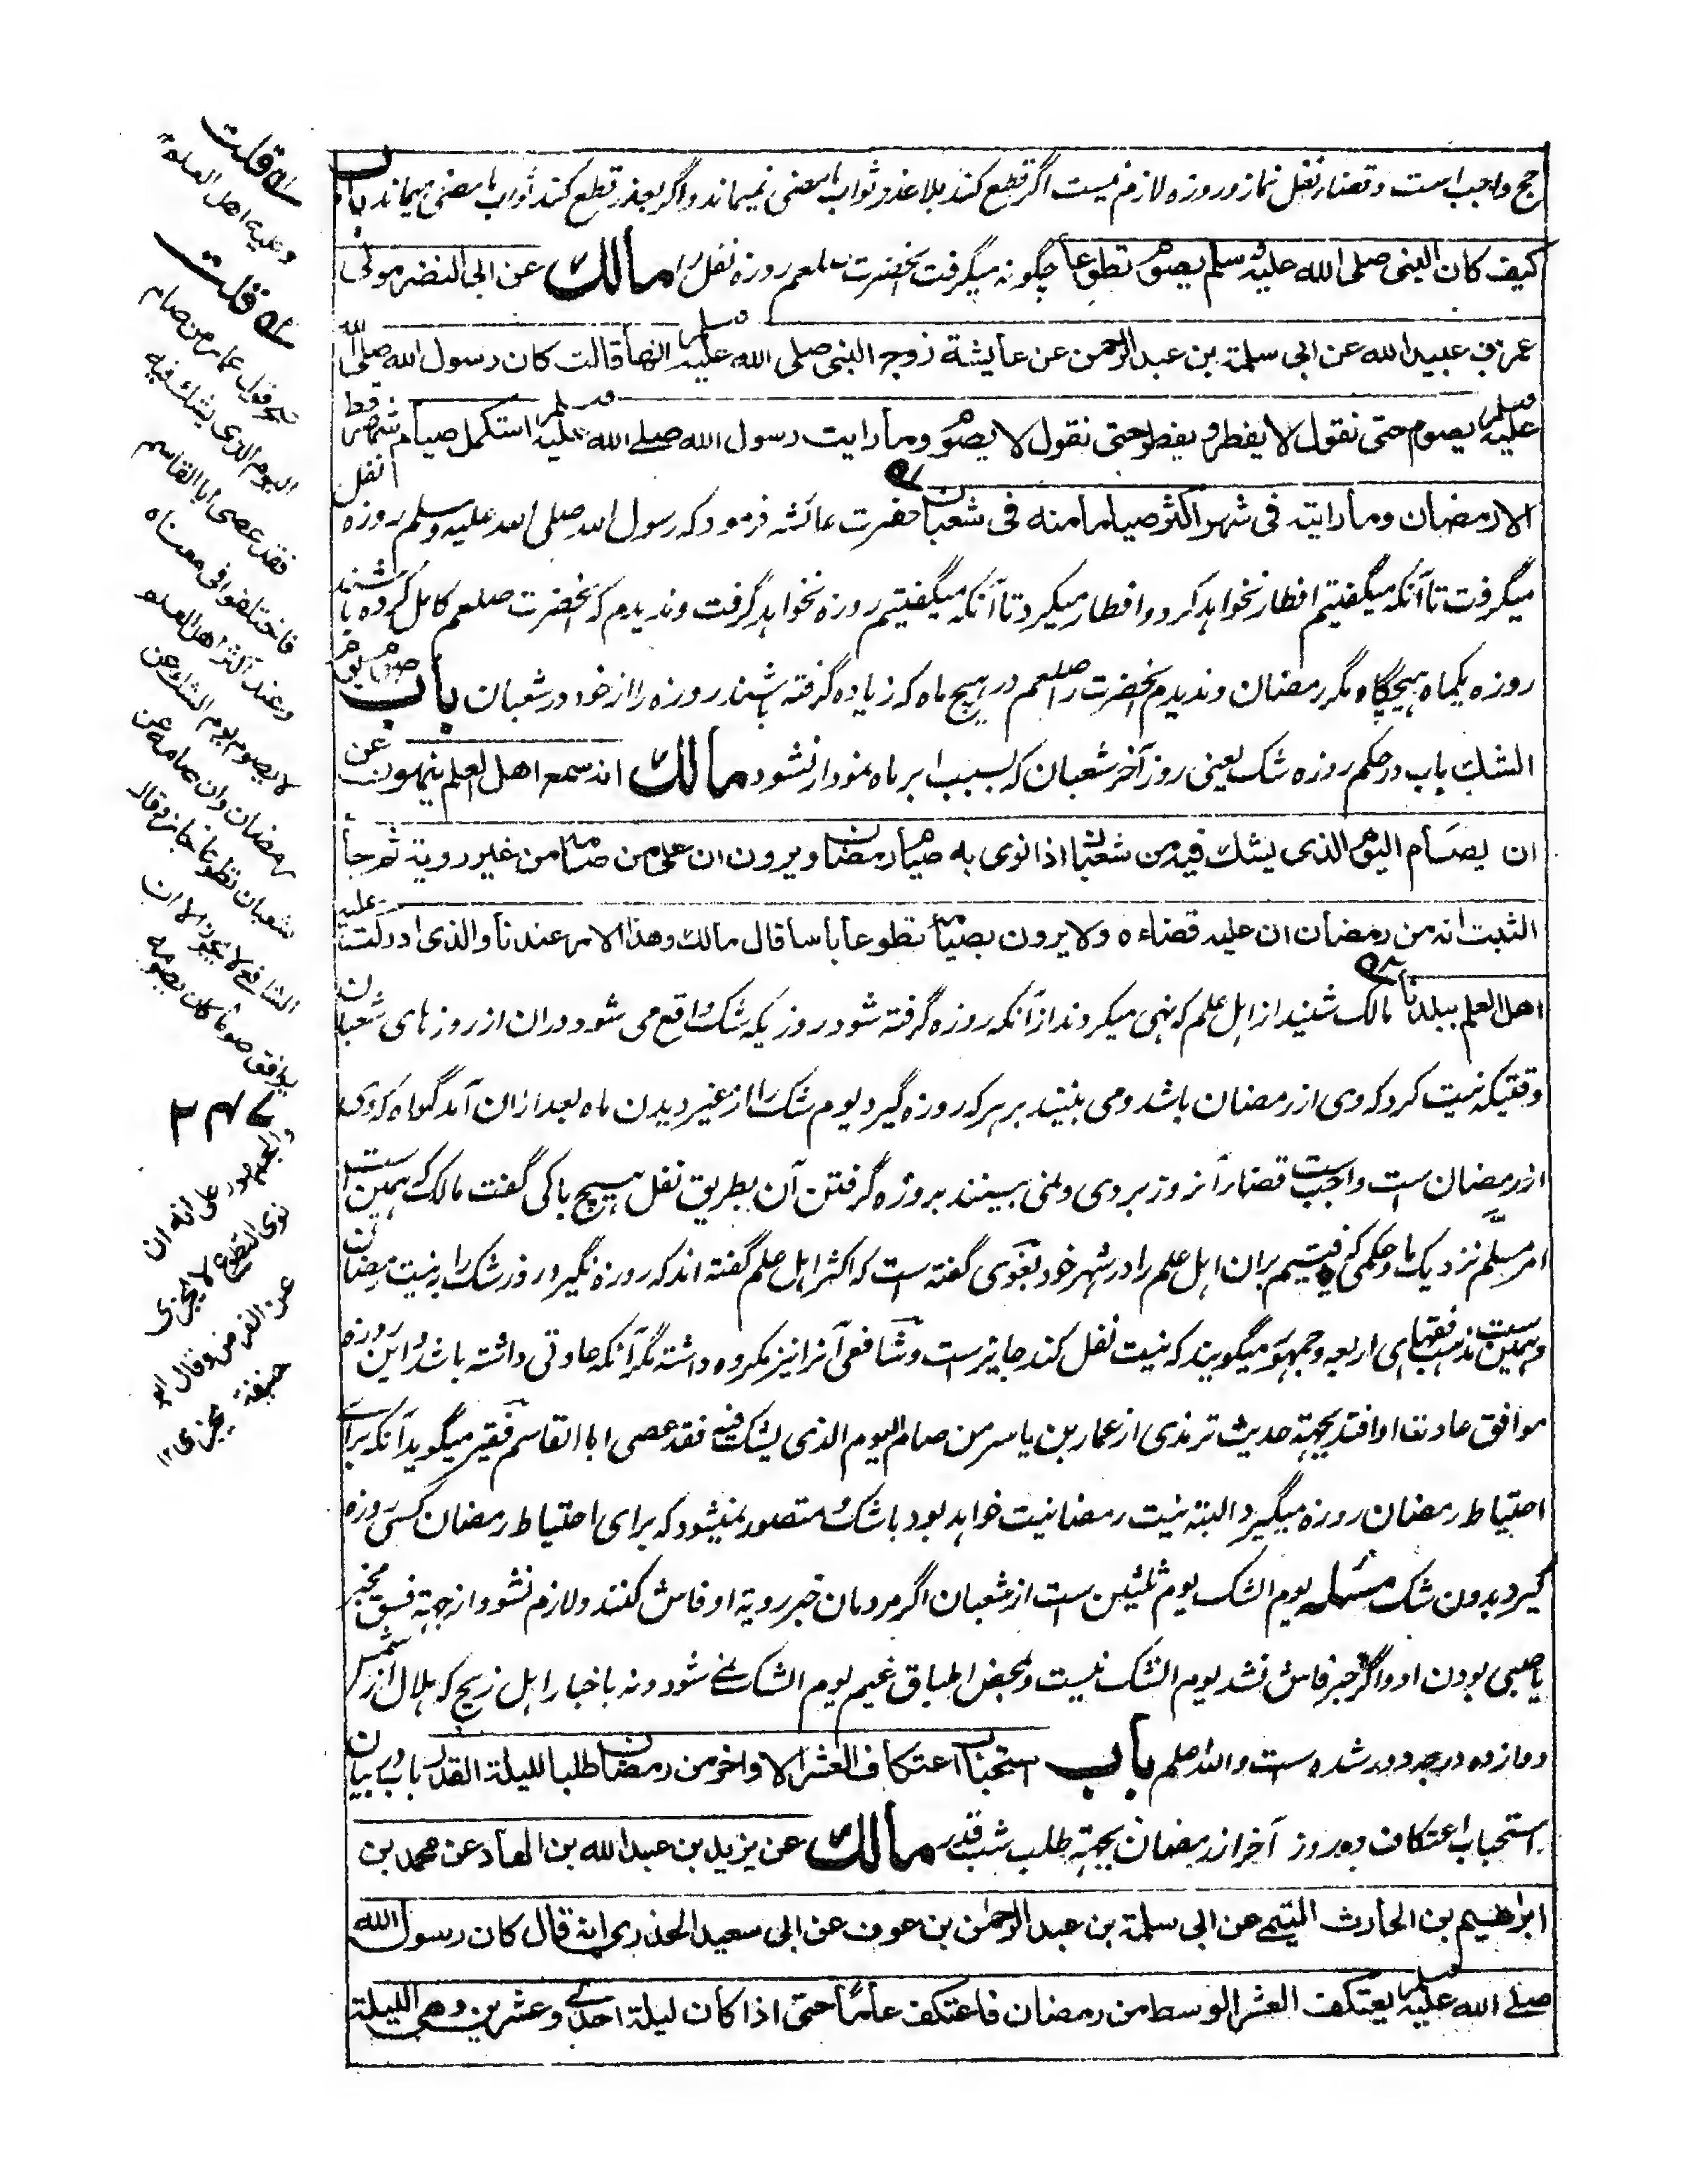 حج واجب است و قضاء نفل نماز و روزه لازم نیست اگر قطع کند بلا عذر ثواب ما مضی نمیماند و اگر بعذر قطع کند ثواب ما مضی میماند باب
کیف کان النبی صلی الله علیه وسلم یصوم تطوعا چگونه میگرفت آنحضرت صلعم روزه نفل را مالك عن ابی النضر مولی
عمر بن عبید الله عن ابی سلمة بن عبد الرحمن عن عایشة زوج النبی صلی الله علیه وسلم انها قالت کان رسول الله صلی الله
علیه وسلم یصوم حتی نقول لا یفطر و یفطر حتی نقول لا یصوم وما رایت رسول الله صلے الله علیه وسلم استکمل صیام شهر قط
الا رمضان وما رایته فی شهر اکثر صیاما منه فی شعبان حضرت عائشه فرمود که رسول الله صلی الله علیه وسلم روزه نفل
میگرفت تا آنکه میگفتیم افطار نخواهد کرد و افطار میکرد تا آنکه میگفتیم روزه نخواهد گرفت و ندیدم که آنحضرت صلعم کامل کرده باشند
روزه یکماه هیچگاه مگر رمضان و ندیدم آنحضرت را صلعم در هیچ ماه که زیاده گرفته باشند روزه را از خود در شعبان باب صوم یوم
الشك باب در حکم روزه شک یعنی روز آخر شعبان که بسبب ابر ماه نمودار نشود مالك انه سمع اهل العلم ینهون عن
ان یصام الیوم الذی یشك فیه من شعبان اذا نوی به صیام رمضان ویرون ان علی من صامه من غیر رویة ثم جاء
الثبت انه من رمضان ان علیه قضاءه ولا یرون بصیامه تطوعا باسا قال مالك وهذا الامر عندنا والذی ادرکت علیه
اهل العلم ببلدنا مالک شنید از اهل علم که نهی میکردند از آنکه روزه گرفته شود روزیکه شک واقع می شود دران از روزهای شعبان
وقتیکه نیت کرد که وی از رمضان باشد ومی بینند بر هر که روزه گیرد یوم شک را از غیر دیدن ماه بعد ازان آمد گواه که وی
از رمضان است واجب است قضاء آنروز بروی و نمی بینند بروزه گرفتن آن بطریق نفل هیچ باکی گفت مالک که همین است
امر مسلّم نزدیک ما و حکمی که یافتیم بران اهل علم را در شهر خود بغوی گفته است که اکثر اهل علم گفته اند که روزه نگیرد روز شک را به نیت رمضان
و همین ست مذهب فقهای اربعه و جمهور میگویند که نیت نفل کند جایز است و شافعی آنرا نیز مکروه داشته مگر آنکه عادتی داشته باشد و این روزه
موافق عادت او افتد بجهة حدیث ترمذی از عمار بن یاسر من صام الیوم الذی یشک فیه فقد عصی ابا القاسم فقیر میگوید آنکه برای
احتیاط رمضان روزه میگیرد البته نیت رمضانیت خواهد بود با شک و متصور نمیشود که برای احتیاط رمضان کسی روزه
گیرد بدون شک مسئله یوم الشک یوم ثلثین ست از شعبان اگر مردمان خبر رویة او فاش کنند و لازم نشود از جهة فسق مخبر
یا صبی بودن او و اگر خبر فاش نشد یوم الشک نیست و بمحض اطباق غیم یوم الشک نمے شود و نه باخبار اهل زیج که هلال از شمس
دوازده درجه دور شده ست والله اعلم باب استحباب اعتکاف العشر الاواخر من رمضان طلبا للیلة القدر باب در بیان
استحباب اعتکاف ده روز آخر از رمضان بجهة طلب شب قدر مالك عن یزید بن عبد الله بن الهاد عن محمد بن
ابراهیم بن الحارث التیمی عن ابی سلمة بن عبد الرحمن بن عوف عن ابی سعید الخدری انه قال کان رسول الله
صلے الله علیه وسلم یعتکف العشر الوسط من رمضان فاعتکف عاما حتی اذا کان لیلة احدی وعشرین وهی اللیلة
قلت
وعلیه اهل العلم ۱۲
قلت
قول عمار من صام
الیوم الذی یشك فیه
فقد عصی ابا القاسم
فاختلفوا فی معناه
وعند اکثر اهل العلم
لا یصوم یوم الشك عن
رمضان وان صامه عن
شعبان تطوعا جاز وقال
الشافعی لا یجوز الا ان
یوافق صوما کان یصومه
والجمهور علی انه ان
نوی التطوع لا یجزی
عن الفرض وقال ابو
حنیفة یجزی ۱۲